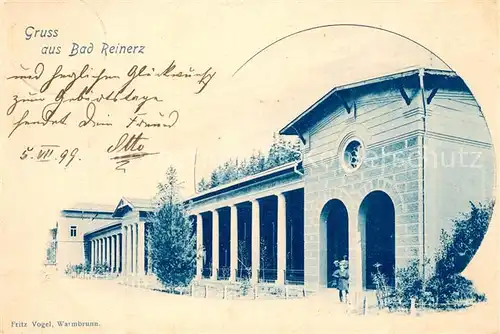 Gruss
aus Bad Reinerz
und herzlichen Glückwunsch
zum Geburtstage
sendet Dein Freund
Otto
5. VII. 99.
Fritz Vogel, Warmbrunn.